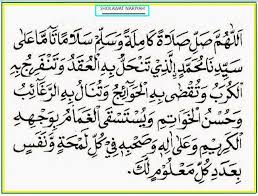 SHOLAWAT NARIYAH
اَللّٰهُمَّ صَلِّ صَلَاةً كَامِلَةً وَسَلِّمْ سَلَامًا تَامًّا عَلٰى
سَيِّدِنَا مُحَمَّدٍ الَّذِيْ تَنْحَلُّ بِهِ الْعُقَدُ وَتَنْفَرِجُ بِهِ
الْكُرَبُ وَتُقْضٰى بِهِ الْحَوَائِجُ وَتُنَالُ بِهِ الرَّغَائِبُ
وَحُسْنُ الْخَوَاتِمِ وَيُسْتَسْقَى الْغَمَامُ بِوَجْهِهِ
الْكَرِيْمِ وَعَلٰى اٰلِهِ وَصَحْبِهِ فِيْ كُلِّ لَمْحَةٍ وَنَفَسٍ
بِعَدَدِ كُلِّ مَعْلُوْمٍ لَكَ